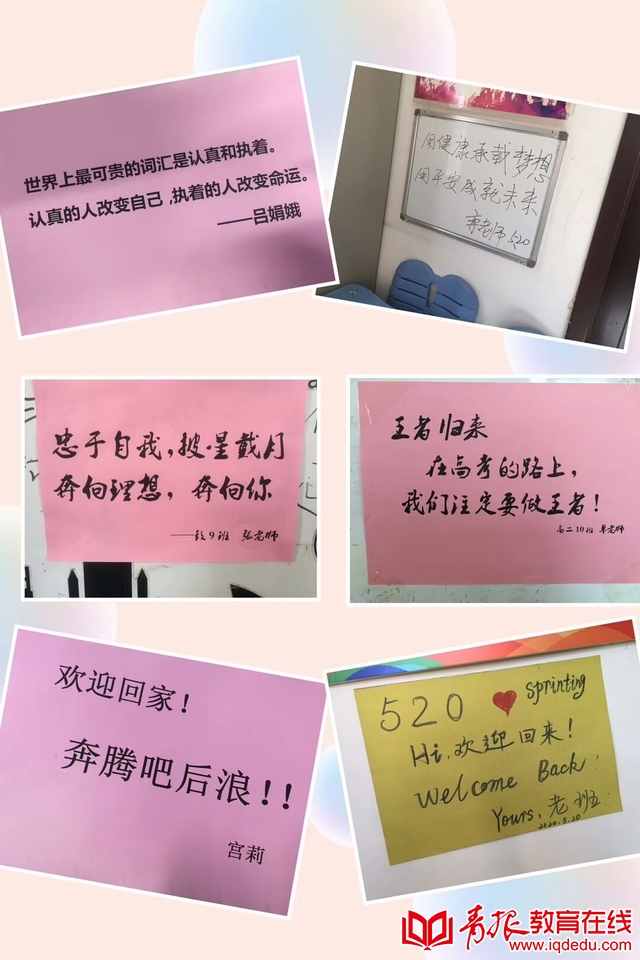 世界上最可贵的词汇是认真和执着。
认真的人改变自己,执着的人改变命运。
——吕娟娥
用健康承载梦想
用平安成就未来
老师 520
忠于自我,披星戴月
奔向理想，奔向你
9班 张老师
王者归来
在高考的路上，
我们注定要做王者！
高二10班 单老师
欢迎回家！
奔腾吧后浪！！
宫莉
520 ♥ sprinting
Hi,欢迎回来！
Welcome Back!
Yours, 老班
2020.5.20
青报教育在线
www.iqdedu.com